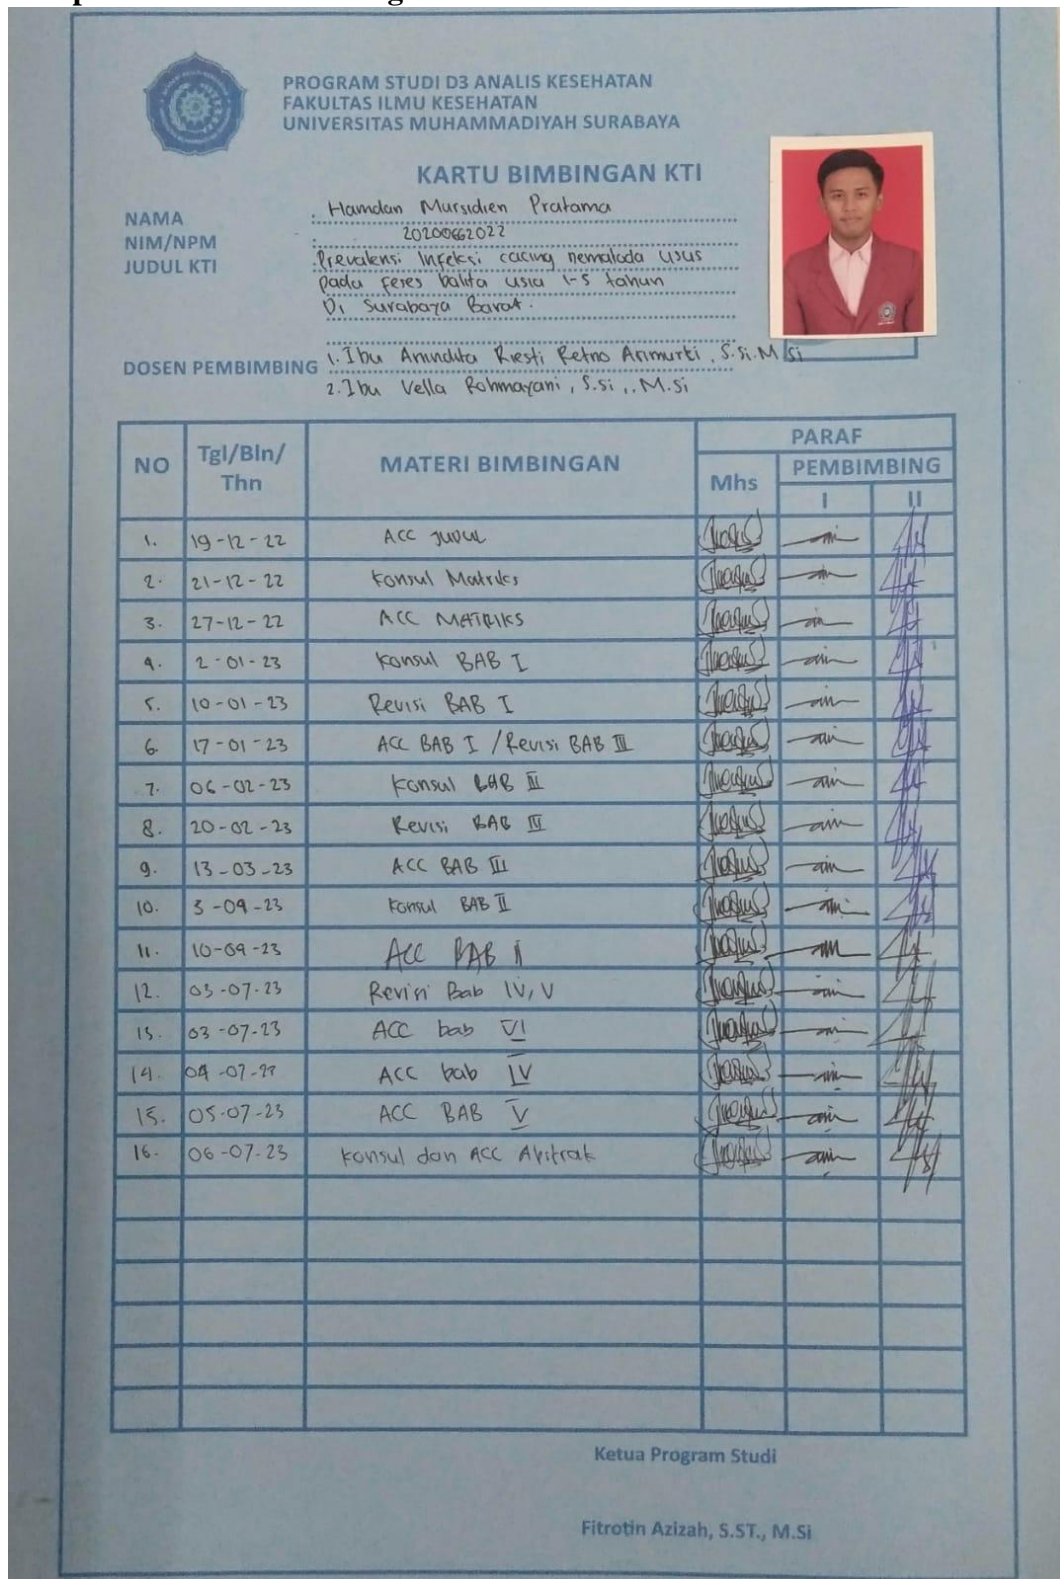 PROGRAM STUDI D3 ANALIS KESEHATAN
FAKULTAS ILMU KESEHATAN
UNIVERSITAS MUHAMMADIYAH SURABAYA
KARTU BIMBINGAN KTI
NAMA : Hamdan Mursidien Pratama
NIM/NPM : 20200662022
JUDUL KTI : Prevalensi Infeksi cacing nematoda usus
pada feses balita usia 1-5 tahun
Di Surabaya Barat.
DOSEN PEMBIMBING 1. Ibu Anindita Riesti Retno Arimurti, S.Si.M.Si
2. Ibu Vella Rohmayani, S.si., M.si
NO Tgl/Bln/Thn MATERI BIMBINGAN PARAF
Mhs PEMBIMBING
I II
1. 19-12-22 ACC JUDUL
2. 21-12-22 Konsul Matriks
3. 27-12-22 ACC MATRIKS
4. 2-01-23 Konsul BAB I
5. 10-01-23 Revisi BAB I
6. 17-01-23 ACC BAB I / Revisi BAB III
7. 06-02-23 Konsul BAB III
8. 20-02-23 Revisi BAB
9. 13-03-23 ACC BAB III
10. 3-04-23 Konsul BAB II
11. 10-04-23 ACC BAB II
12. 03-07-23 Revisi Bab IV, V
13. 03-07-23 ACC bab VI
14. ACC bab IV
15. 05-07-23 ACC BAB V
16. 06-07-23 Konsul dan ACC Abstrak
Ketua Program Studi
Fitrotin Azizah, S.ST., M.Si